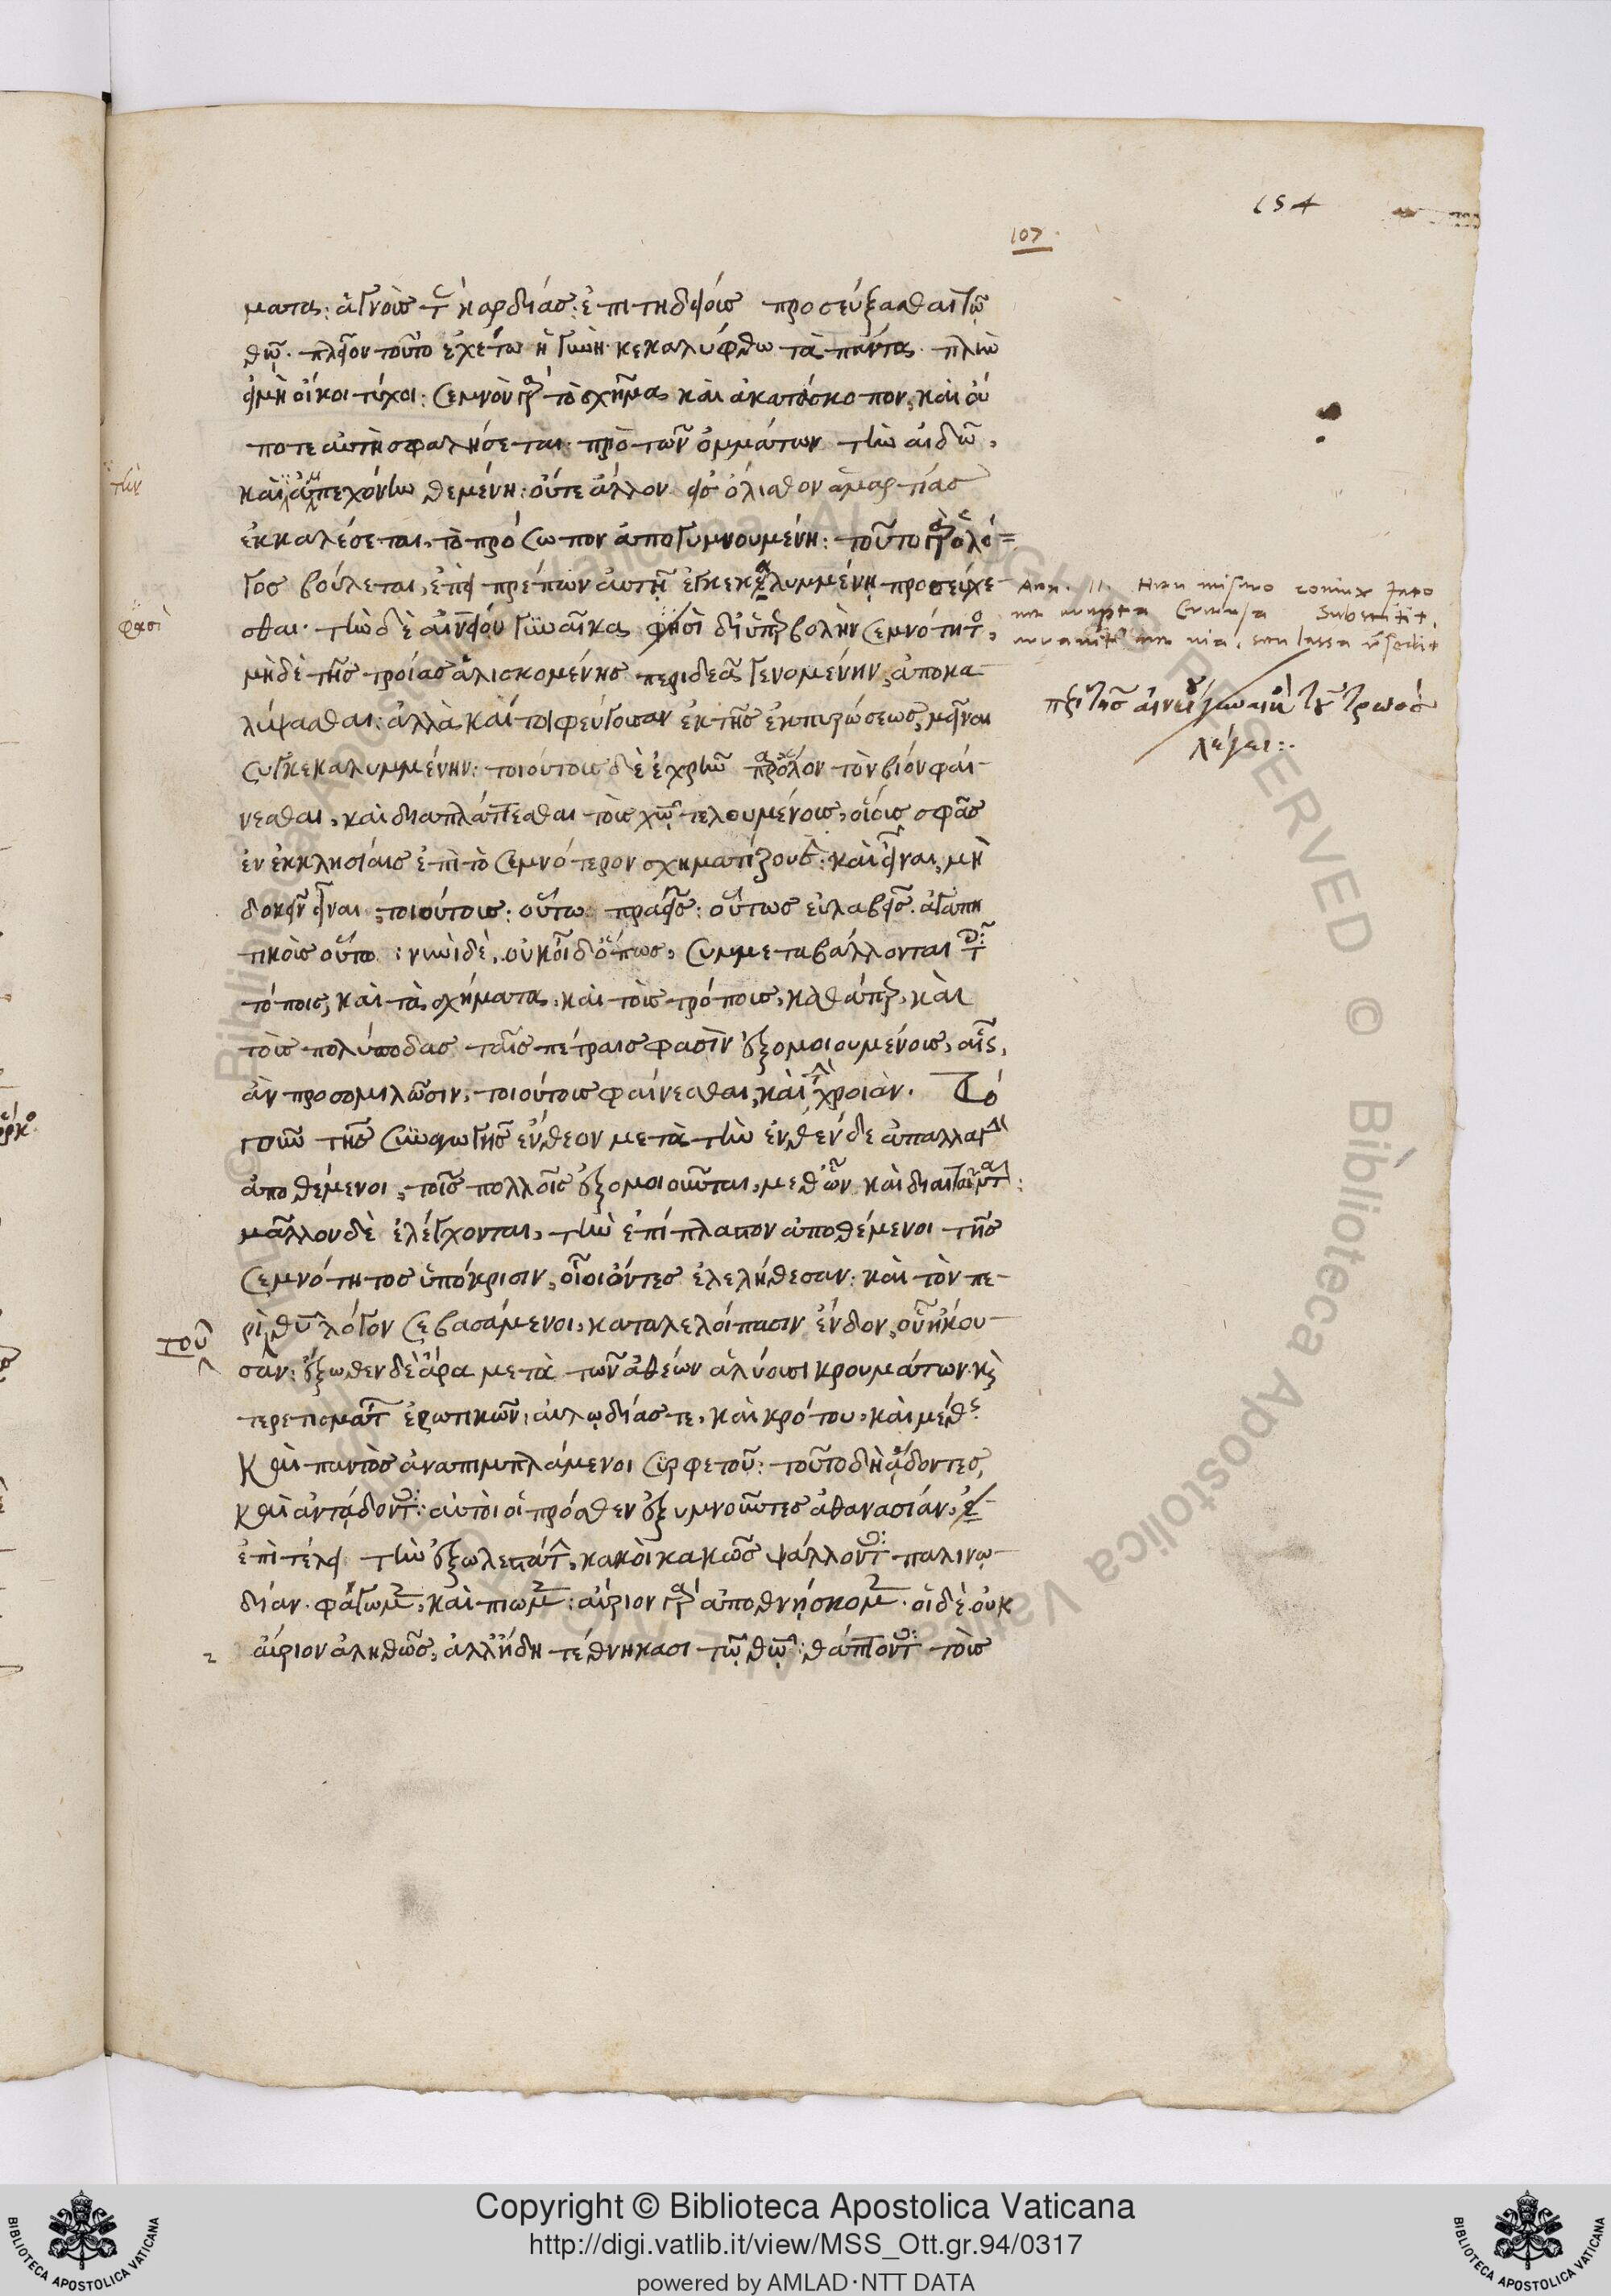 154
107
ματα· ἁγνοὺς τὰς καρδίας· ἐπιτηδείους προσεύξασθαι τῷ
θεῷ. πλεῖον τοῦτο ἐχέτω ἡ γυνή· κεκαλύφθω τὰ πάντα· πλὴν
εἰ μὴ οἴκοι τύχοι· σεμνὸν γὰρ τὸ σχῆμα καὶ ἀκατάσκοπον, καὶ οὔ
ποτε αὐτὴ σφαλήσεται· πρὸ τῶν ὀμμάτων τὴν αἰδῶ,
τὴν
καὶ ἀμπεχόνην θεμένη· οὔτε ἄλλον εἰς ὄλισθον ἁμαρτίας
ἐκκαλέσεται, τὸ πρόσωπον ἀπογυμνουμένη· τοῦτο γὰρ ὁ λό=
γος βούλεται, ἐπεὶ πρέπων αὐτῇ ἐγκεκαλυμμένῃ προσεύχε-
φασὶ
σθαι· τὴν δὲ αἰνείου γυναῖκα φησὶ δι' ὑπερβολὴν σεμνότητος,
μηδὲ τῆς τροίας ἁλισκομένης περιδεᾶ γενομένην, ἀποκα-
λύψασθαι· ἀλλὰ καίτοι φεύγουσαν ἐκ τῆς ἐκπυρώσεως, μεῖναι
συγκεκαλυμμένην· τοιούτους δὲ ἐχρῆν παρ' ὅλον τὸν βίον φαί-
νεσθαι, καὶ διαπλάττεσθαι τοὺς χριστῷ τελουμένους, οἵους σφᾶς
ἐν ἐκκλησίαις ἐπὶ τὸ σεμνότερον σχηματίζουσιν· καὶ εἶναι, μὴ
δοκεῖν εἶναι τοιούτους· οὕτω πραεῖς· οὕτως εὐλαβεῖς· ἀγαπη
τικοὺς οὕτω· νυνὶ δέ, οὐκ οἶδ' ὅπως, συμμεταβάλλονται τοῖς
τόποις, καὶ τὰ σχήματα, καὶ τοὺς τρόπους, καθάπερ, καὶ
τοὺς πολύποδας ταῖς πέτραις φασὶν ἐξομοιουμένους, αἷς,
ἂν προσομιλῶσιν, τοιούτους φαίνεσθαι, καὶ τὴν χροιάν. Τό
γοῦν τῆς συναγωγῆς ἔνθεον μετὰ τὴν ἐνθένδε ἀπαλλαγὴν
ἀποθέμενοι, τοῖς πολλοῖς ἐξομοιοῦνται, μεθ' ὧν καὶ διαιτῶνται·
μᾶλλον δὲ ἐλέγχονται, τὴν ἐπίπλαστον ἀποθέμενοι τῆς
σεμνότητος ὑπόκρισιν, οἷοι ὄντες ἐλελήθεσαν· καὶ τὸν πε-
τοῦ
ρὶ θεοῦ λόγον σεβασάμενοι, καταλελοίπασιν ἔνδον, οὗ ἤκου-
σαν· ἔξωθεν δὲ ἄρα μετὰ τῶν ἀθέων ἀλύουσι κρουμάτων καὶ
τερετισμάτων ἐρωτικῶν· αὐλῳδίας τε, καὶ κρότου, καὶ μέθης
καὶ παντὸς ἀναπιμπλάμενοι συρφετοῦ· τοῦτο δὴ ᾄδοντες,
καὶ ἀντᾴδοντες· αὐτοὶ οἱ πρόσθεν ἐξυμνοῦντες ἀθανασίαν,
ἐπὶ τέλει τὴν ἐξωλεστάτην, κακοὶ κακῶς ψάλλοντες παλινῳ-
δίαν· φάγωμεν, καὶ πίωμεν· αὔριον γὰρ ἀποθνήσκομεν· οἱ δὲ οὐκ
αὔριον ἀληθῶς, ἀλλ' ἤδη τεθνήκασι τῷ θεῷ· θάπτοντες τοὺς
Aen. II. Heu misero coniux fato
ne erepta Creusa Substitit,
erravitne via, seu lassa resedit
περὶ τῆς αἰνείου γυναικὸς τοῦ τρωὸς
λέγει:.
Copyright © Biblioteca Apostolica Vaticana
http://digi.vatlib.it/view/MSS_Ott.gr.94/0317
powered by AMLAD·NTT DATA
BIBLIOTECA APOSTOLICA VATICANA
BIBLIOTECA APOSTOLICA VATICANA